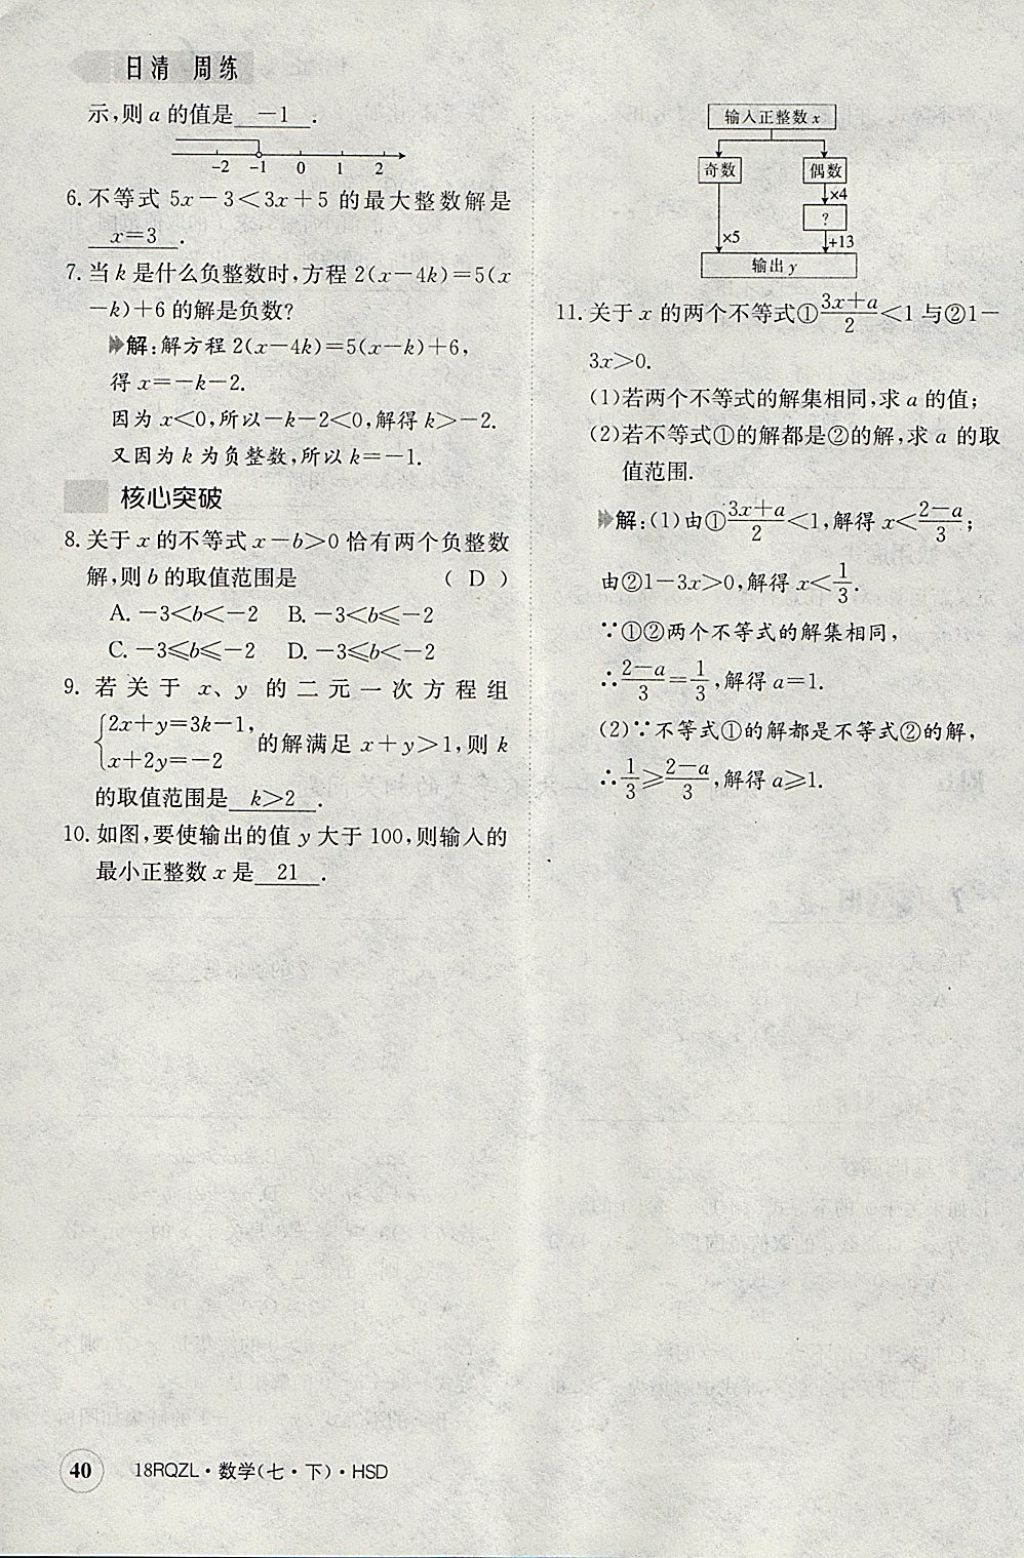 日清 周练
示,则 a 的值是 －1 .
－2 －1 0 1 2
6. 不等式 5x－3＜3x＋5 的最大整数解是
x＝3 .
7. 当 k 是什么负整数时,方程 2(x－4k)＝5(x
－k)＋6 的解是负数?
解:解方程 2(x－4k)＝5(x－k)＋6,
得 x＝－k－2.
因为 x＜0,所以－k－2＜0,解得 k＞－2.
又因为 k 为负整数,所以 k＝－1.
核心突破
8. 关于 x 的不等式 x－b＞0 恰有两个负整数
解,则 b 的取值范围是 ( D )
A. －3＜b＜－2 B. －3＜b≤－2
C. －3≤b≤－2 D. －3≤b＜－2
9. 若关于 x、y 的二元一次方程组
{2x＋y＝3k－1, x＋2y＝－2 的解满足 x＋y＞1,则 k
的取值范围是 k＞2 .
10. 如图,要使输出的值 y 大于 100,则输入的
最小正整数 x 是 21 .
输入正整数 x
奇数 偶数
×4
?
×5 ＋13
输出 y
11. 关于 x 的两个不等式①(3x＋a)/2＜1 与②1－
3x＞0.
(1)若两个不等式的解集相同,求 a 的值;
(2)若不等式①的解都是②的解,求 a 的取
值范围.
解:(1)由①(3x＋a)/2＜1,解得 x＜(2－a)/3;
由②1－3x＞0,解得 x＜1/3.
∵①②两个不等式的解集相同,
∴(2－a)/3＝1/3,解得 a＝1.
(2)∵不等式①的解都是不等式②的解,
∴1/3≥(2－a)/3,解得 a≥1.
40 18RQZL·数学(七·下)·HSD